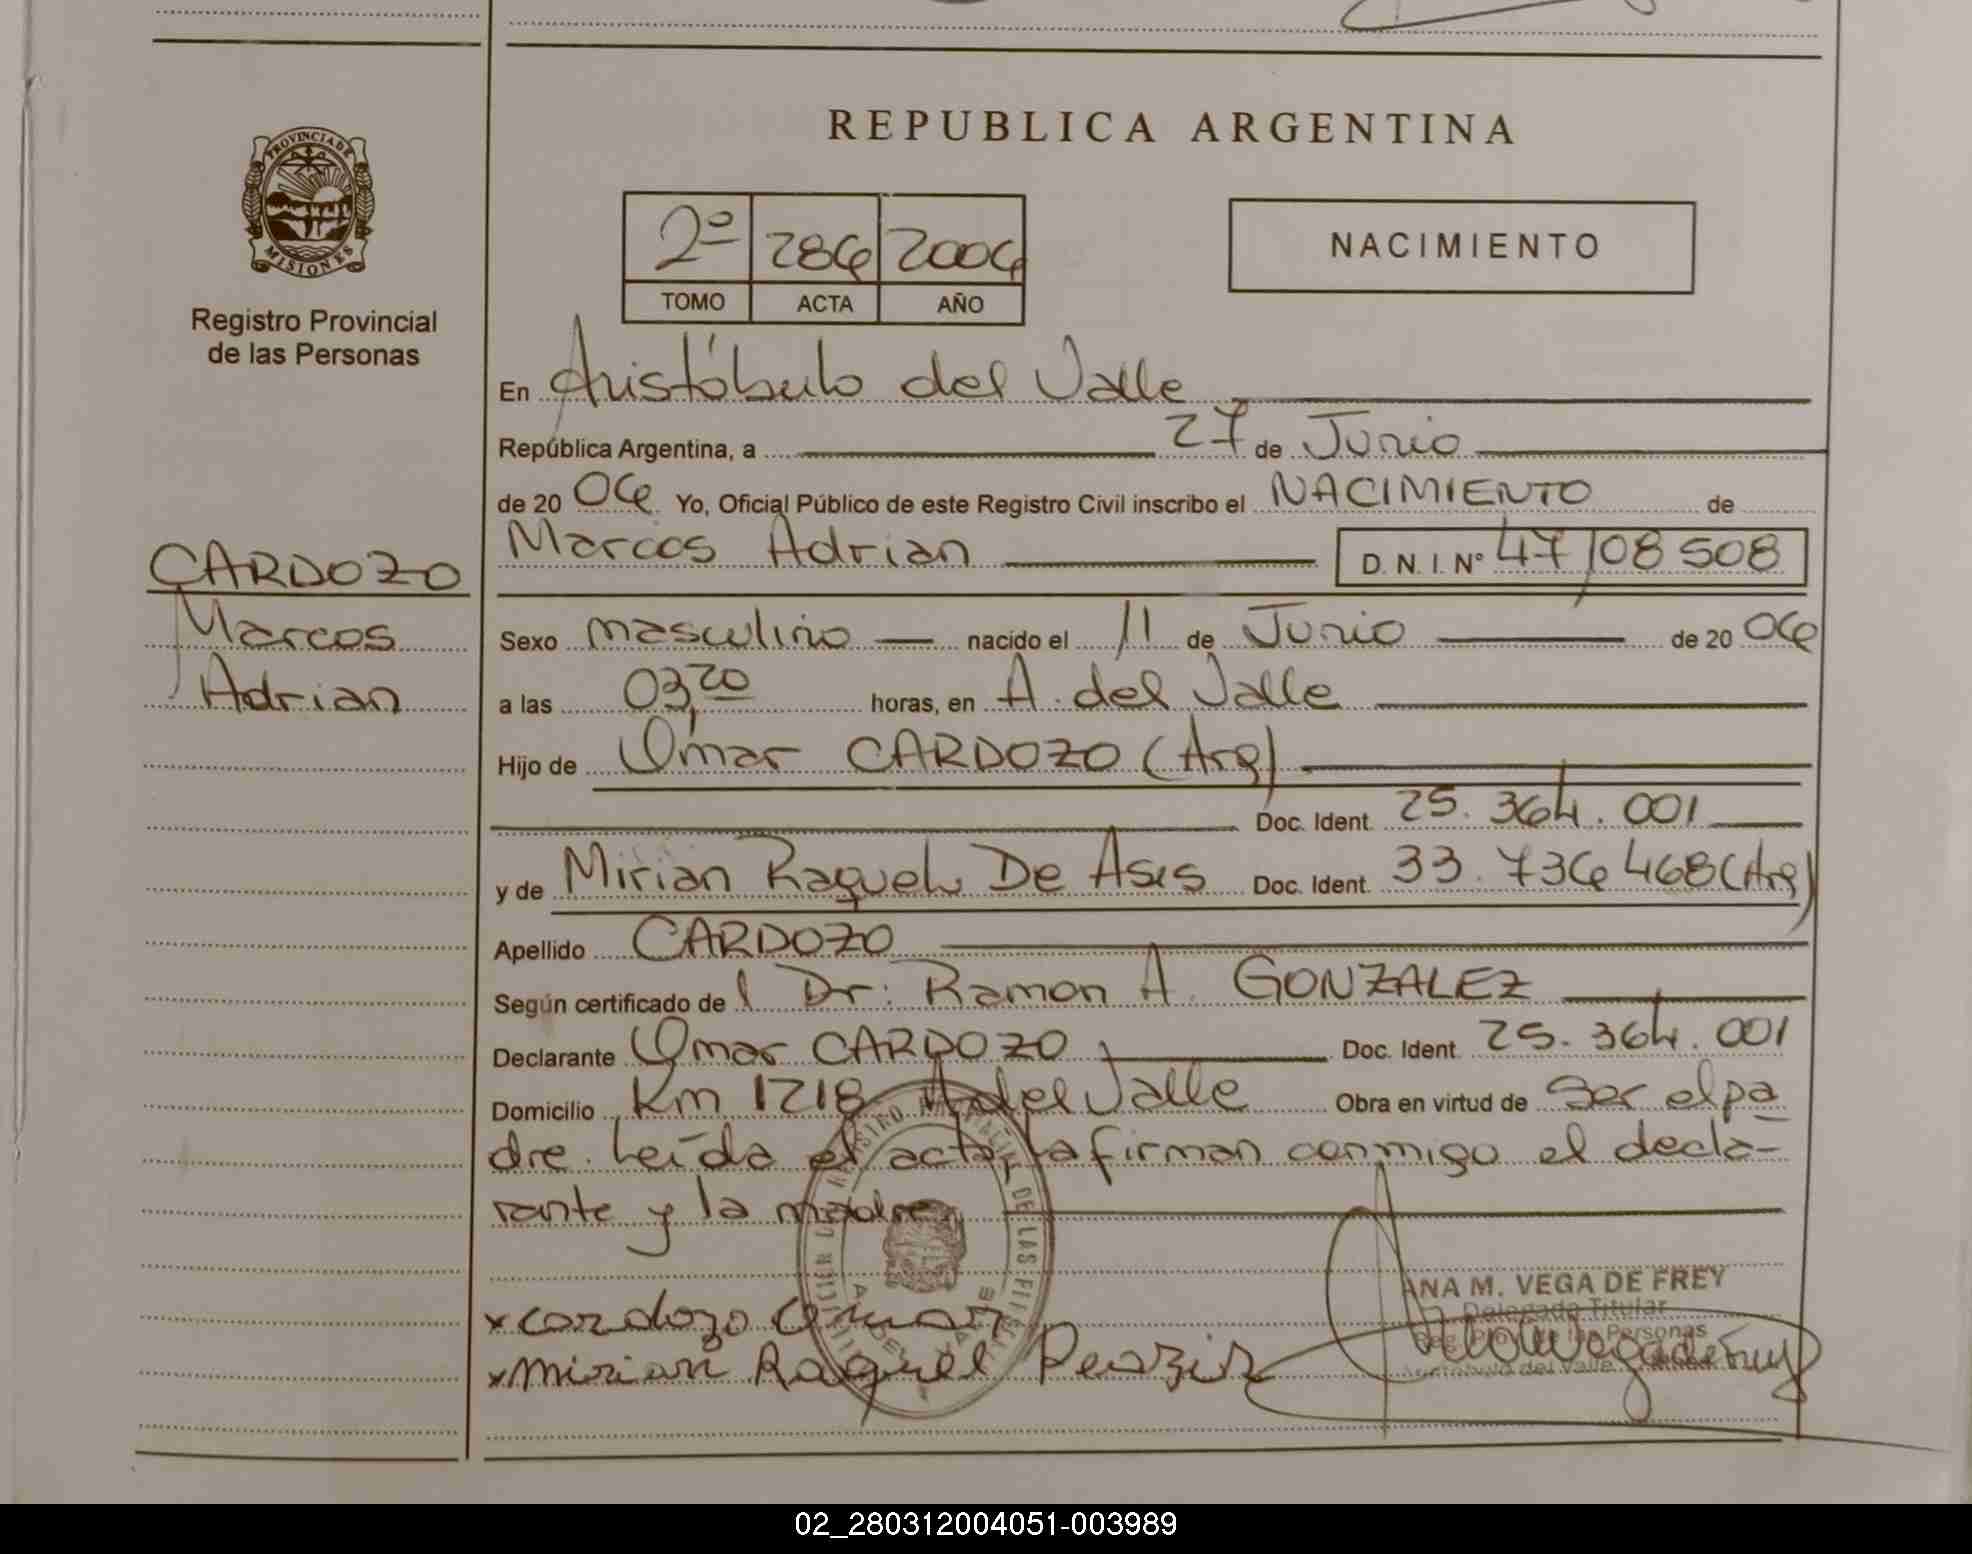 PROVINCIA DE
MISIONES
Registro Provincial
de las Personas
CARDOZO
Marcos
Adrian
REPUBLICA ARGENTINA
2º 286 2006
TOMO ACTA AÑO
NACIMIENTO
En Aristóbulo del Valle
República Argentina, a 27 de Junio
de 20 06 Yo, Oficial Público de este Registro Civil inscribo el NACIMIENTO de
Marcos Adrian D. N. I. Nº 47108508
Sexo masculino nacido el 11 de Junio de 20 06
a las 03,20 horas, en A. del Valle
Hijo de Omar CARDOZO (Arg)
Doc. Ident. 25.364.001
y de Mirian Raquel De Asis Doc. Ident. 33.736468 (Arg)
Apellido CARDOZO
Según certificado del Dr. Ramon A. GONZALEZ
Declarante Omar CARDOZO Doc. Ident. 25.364.001
Domicilio Km 1218 A del Valle Obra en virtud de ser el pa
dre. Leída el acta, la firman conmigo el decla-
rante y la madre
ANA M. VEGA DE FREY
Delegada Titular
Reg. Prov. de las Personas
Aristóbulo del Valle
x cardozo Omar
x Mirian Raquel
02_280312004051-003989